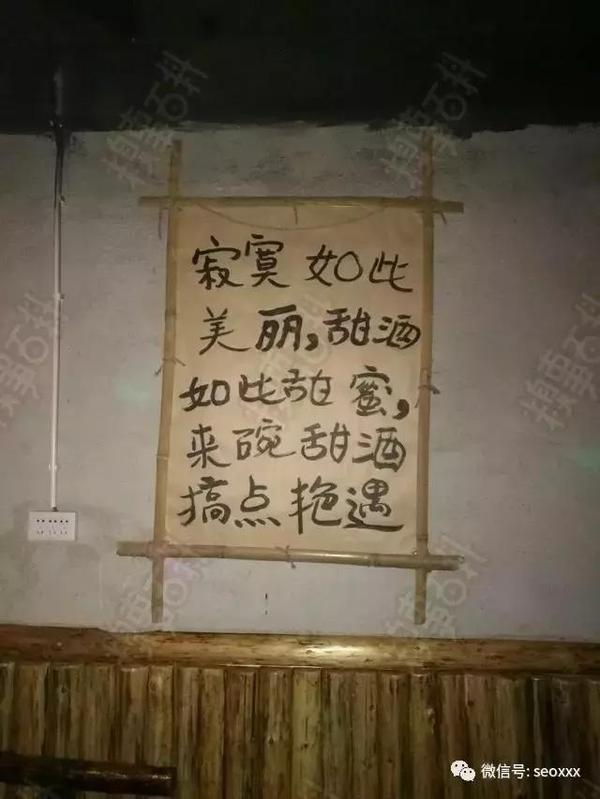 寂寞如此
美丽,甜酒
如此甜蜜,
来碗甜酒
搞点艳遇
微信号: seoxxx